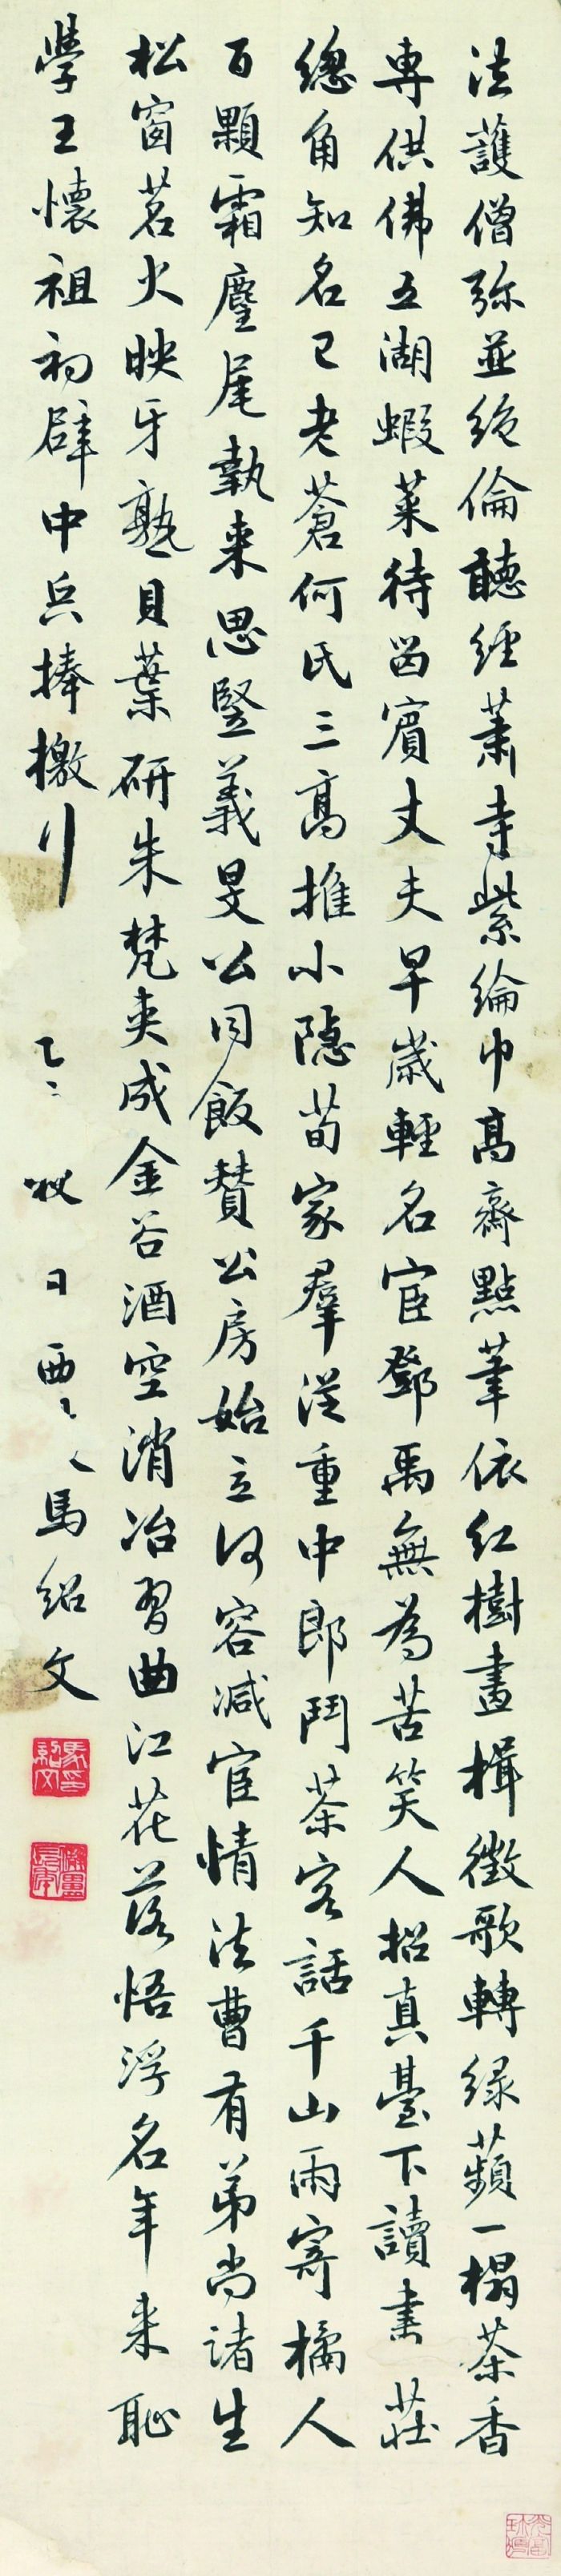 法護僧彌並絶倫聽經蕭寺紫綸巾高齋點筆依紅樹畫楫徵歌轉緑蘋一榻茶香
専供佛五湖蝦菜待留賓丈夫早歲輕名宦鄧禹無為苦笑人招真臺下讀書莊
總角知名已老蒼何氏三高推小隱荀家羣從重中郎鬥茶客話千山雨寄橘人
百顆霜麈尾執來思豎義旻公同飯贊公房始立何容減宦情法曹有弟尚諸生
松窗茗火映牙熟貝葉研朱梵夾成金谷酒空消冶習曲江花落悟浮名年来恥
學王懷祖初辟中兵捧檄行
秋日
馬紹文